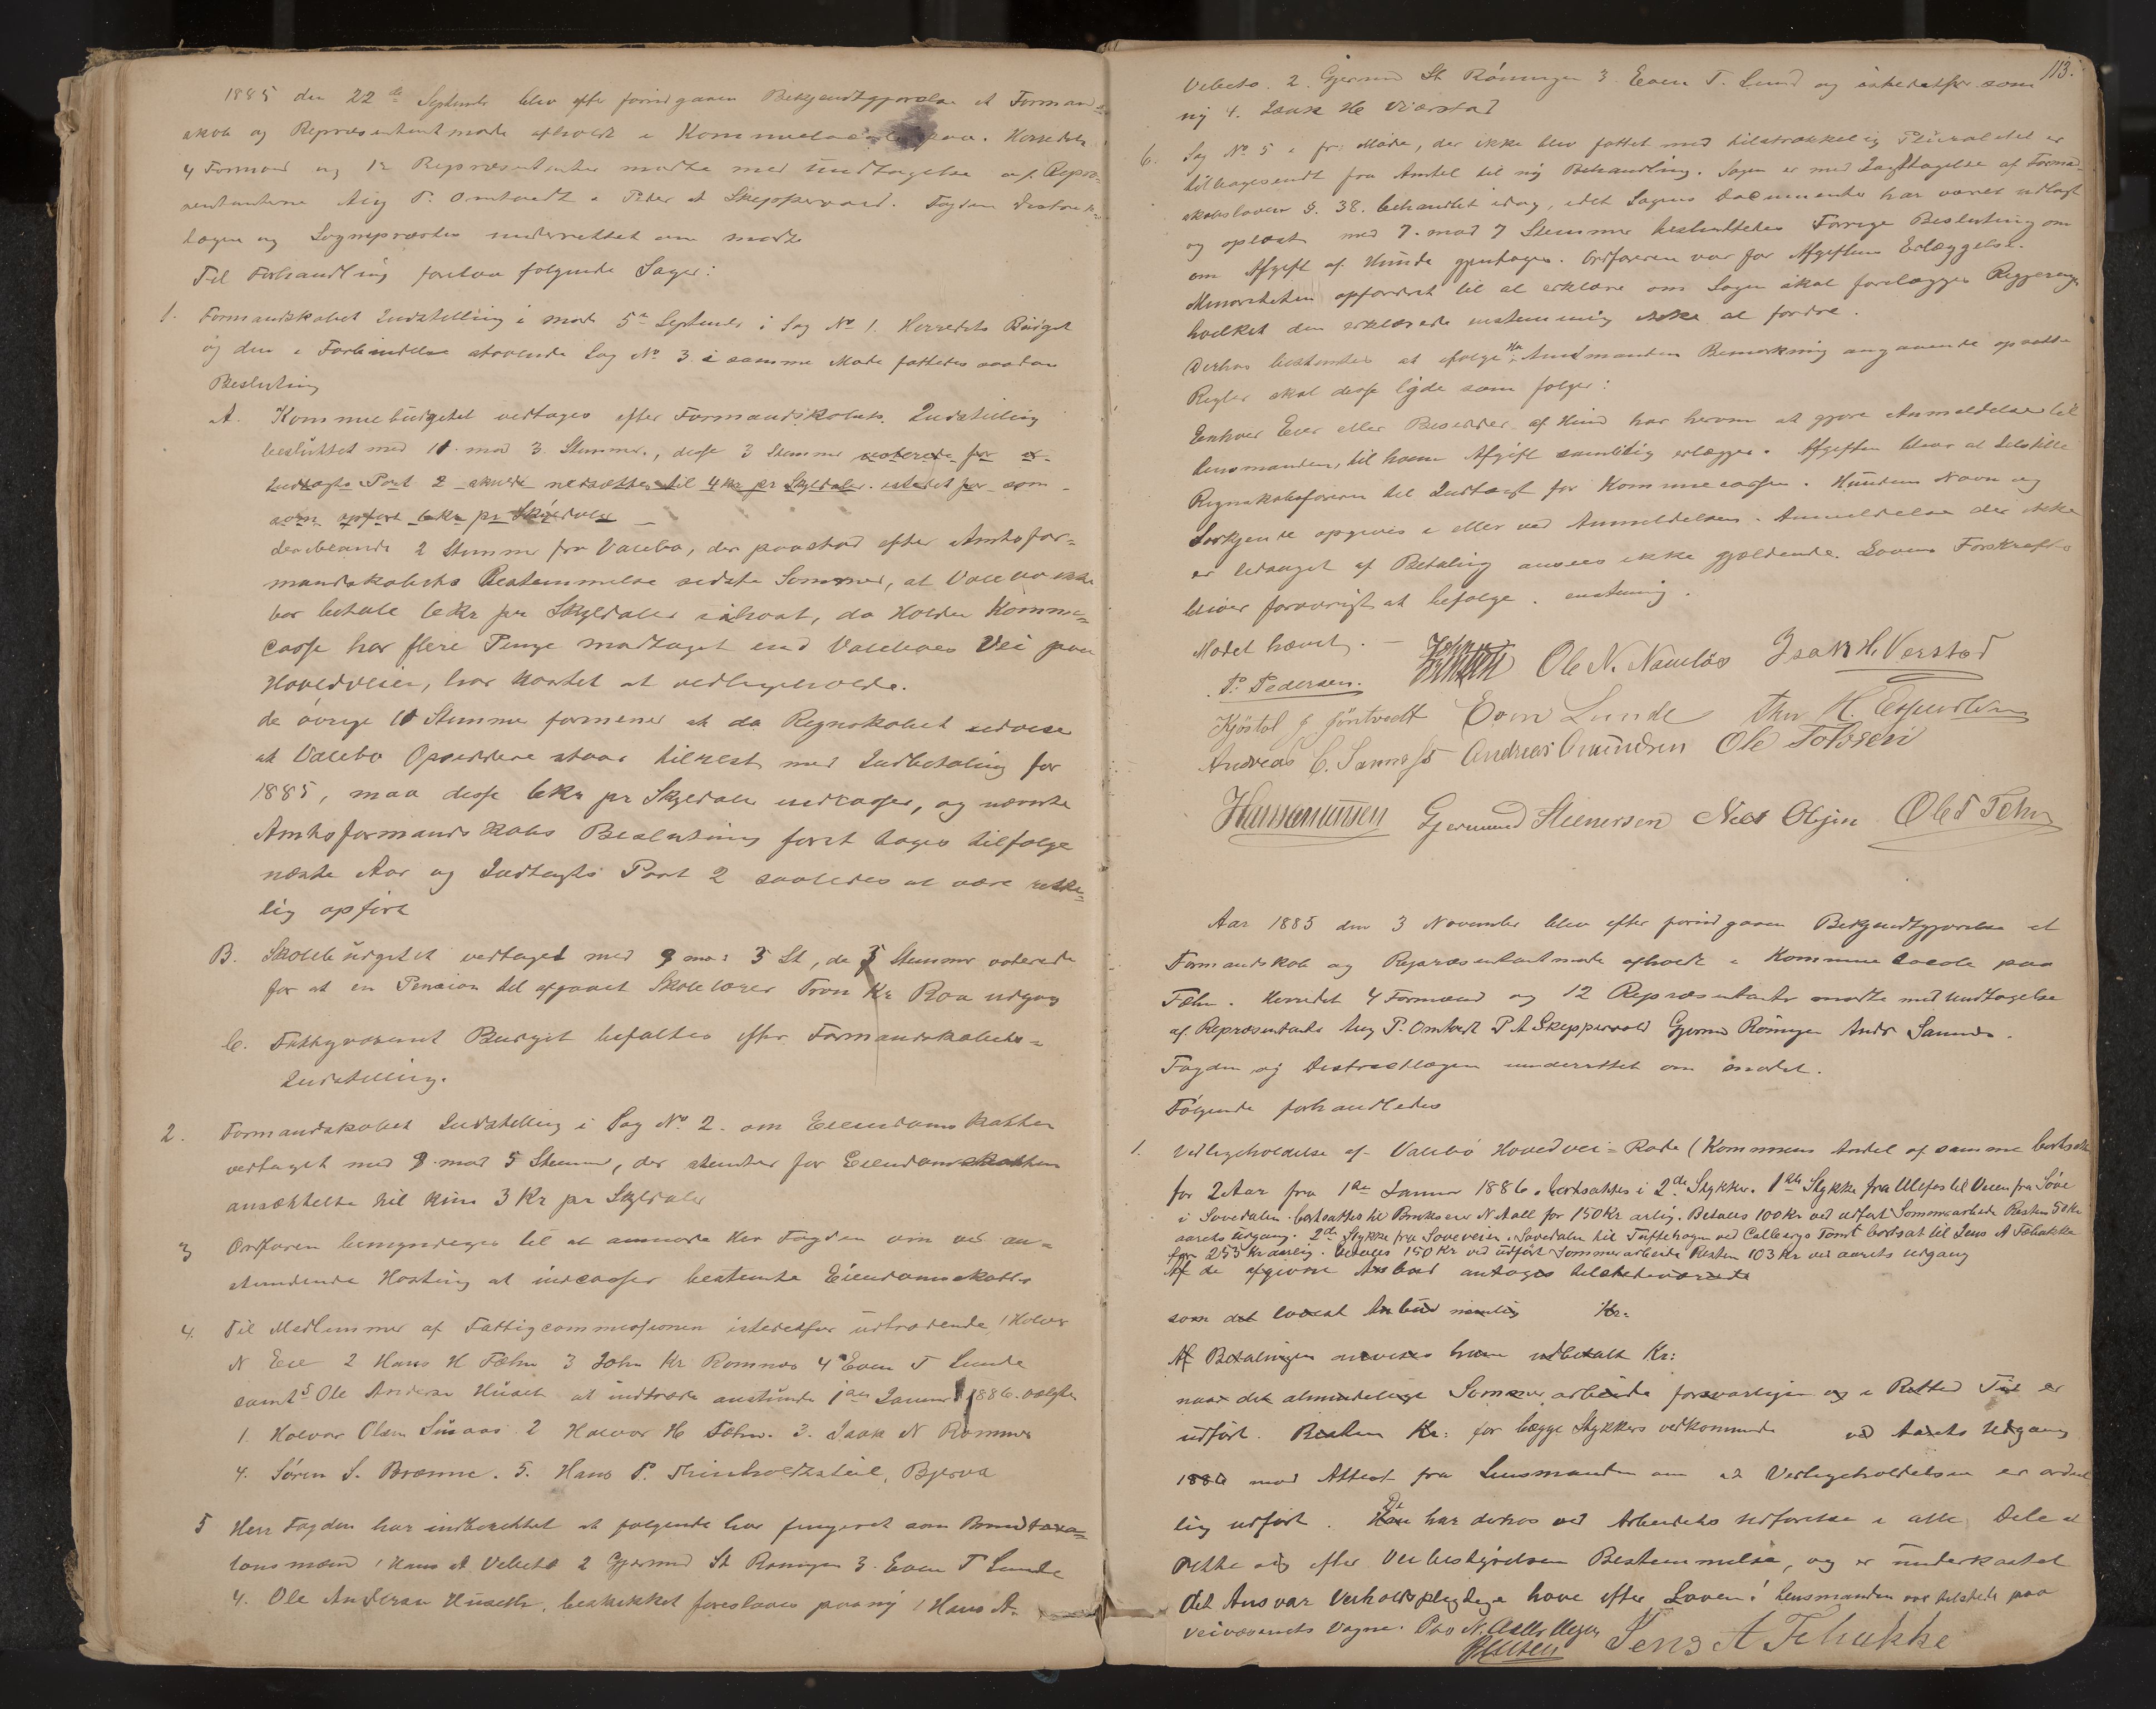 1885 den 22de Septembr blev efter forudgaaen Bekjendtgjørelse et Formand=
skab og Repræsentantmøde afholdt i Herredets
4 Formænd og 12 Repræsentanter mødte med Undtagelse af Repræ=
sentanterne Aug P. Omtvedt o Peter A Skeppervold. Fogden Distrikts=
lægen og Sognepræsten underrettet om mødet
Til Forhandling foretoes følgende Sager:
1. Formandskabets Indstilling i møde 5te Septembr i Sag No 1. Herredets Büdget
og den i Forbindelse staaende Sag No 3 i samme Møde fattedes saadan
Beslutning
A. Kommunebüdgetet vedtages efter Formandskabets Indstilling
besluttet med 11 mod 3 Stemmer, disse 3 Stemmer voterede for at
Indtægts Post 2 skulde nedsættes til 4 Kr pr Skyldaler istedet for som
som opført 6 Kr pr Skyldaler
deriblandt 2 Stemmer fra Valebø, der paastod efter Amtsfor=
mandskabets Bestemmelse sidste Sommer, at Valebø ikke
bør betale 6 Kr pr Skyldaler iahvat, da Holden Kommu=
casse har flere Penge modtaget end Valebøes Vei paa
Hovedveien, har kostet at vedligeholde.
de øvrige 11 Stemmer formener at da Regnskabet udviser
at Valebø Opsiddere staar tilrest med Indbetaling for
1885, maa disse 6 Kr pr Skyldaler indcasses, og nævnte
Amtsformandskabs Beslutning først tages tilfølge
næste Aar og Indtægts Post 2 saaledes at være rette=
lig opført
B. Skolebüdgetet vedtaget med 9 mod 5 St, de 5 Stemmer voterede
for at en Pension til afgaaet Skolelærer Tron Kr Roa udgaar
C. Fattigvæsenet Budget befattes efter Formandskabets=
Indstilling.
2. Formandskabet Indstilling i Sag No 2. om Eiendomsskatten
vedtaget med 9 mod 5 Stemmer, der stemte for Eiendomsskatten
ansættelse til kun 3 Kr pr Skyldaler
3 Ordføren bemyndiges til at anmode Her Fogden om ved an=
stundende Høsting at indcasser bestemte Eiendomsskatt
4. Til Medlemmer af Fattigcommissionen istedetfor udtrædende 1 Halvor
N Eie 2 Hans H Fæhn 3 John Kr Romnæs 4 Even T Lunde
samt 5 Ole Andersen Hüseth at indtræde anstunde 1ste Januar 1886. valgtes
1. Halvor Olsen Süsaas 2 Halvor H Fæhn. 3. Isak N Romnæs
4. Søren S. Brænne. 5. Hans P. Steinholtsteil, Bjerva
5 Herr Fogden har indberettet at følgende har fungeret som Brandtaxa=
tionsmænd 1 Hans A Vebeto 2 Gjermund St Rønningen 3. Even T Lunde
4. Ole Andersen Hüseth, beskikket foreslaaes paany 1 Hans A.
113.
Vebeto. 2. Gjermund St Rönningen 3 Even T. Lund og istedetfor som
ny 4. Isak H. Værstad
6. Sag No 5 i fr: Møde, der ikke blev fattet med tilstrækkelig Pluralitet er
tilbagesendt fra Amtet til ny Behandling. Sagen er med Iagttagelse af Formand=
skabslovens §. 38. behandlet idag, idet Sagens Documenter har været udlagt
og oplæst med 7. mod 7 Stemmer besluttedes Forrige Beslutning om
om Afgift af Hünde gjentages. Ordføreren var for Afgiftens Erlæggelse.
Minoriteten opfordret til at erklære om Sagen skal forelægges Regjeringen
hvilket den erklærede enstemmig ikke at fordre.
Derhos bestemtes at ifølge Hr Amtmanden Bemærkning angaaende opsatte
Regler skal disse lyde som følger:
Enhver Eier eller Besidder af Hund har herom at gjøre Anmeldelse til
Lensmanden, til ham Afgift samtidig erlægges. Afgiften bliver at tilstille
Regnskabsføreren til Indtægt for Kommunecassen. Hundens Navn og
Særkjende opgives i eller ved Anmeldelsen. Anmeldelse der ikke
er ledsaget af Betaling ansees ikke gjældende. Lovens Forskrefter
bliver forøvrigt at befølge. enstemig.
Mødet hævet. —
P. Pedersen. Ole N. Namløs Isak H. Verstad
Kjöstol J Jöntvedt Even Lunde Thor H. Espersen
Andreas C. Sannes Andreas Amündsen Ole Tolssen
Hansamünsen Gjermund Steenersen Niels Olsen Ole T Fehn
Aar 1885 den 3 November blev efter forudgaaen Bekjendtgjørelse et
Formandskab og Repræsentantmøde afholdt i Kommune Locale paa
Fæhn. Herredet 4 Formænd og 12 Repræsentanter mødte med Undtagelse
af Repræsentante Aug P. Omtvedt P A Skeppervold Gjermd Röningen Andr Sannes.
Fogden og Destrictlægen underrettet om mødet.
Følgende forhandledes
1. Vedligeholdelse af Valebö Hovedvei=Rode (Kommunens Andel af samme bortsatte
for 2 Aar fra 1ste Januar 1886. bortsattes i 2de Stykker. 1ste Stykke fra Ulefos til Veien fra Søve
i Sovedalen bortsattes til Brukseier N Aall for 150 Kr arlig. Betales 100 Kr ved udført Sommerarbeide Resten 50 Kr
aarets udgang. 2det Stykke fra Søveveien i Sovedalen til Tüftehagen ved Colbergs Tomt bortsat til Jens A Fehakke
for 253 Kr aarlig. betales 150 Kr ved udført Sommerarbeide Resten 103 Kr ved aarets udgang
Af de afgivne Anbud antoges
som det lavest Anbüd nemlig Kr:
Af Betalingen anvises ham udbetalt Kr:
naar det almindelige Sommerarbeide forsvarligen og i Rette Tid er
udført. Resten Kr: for begge Stykkers vedkommende ved Aarets Udgang
1886 mod Attest fra Lensmanden om at Vedligeholdelsen er ordent
lig udført. De har derhos ved Arbeidets Udførelse i alle Dele at
rette sig efter Veibestyrelsen Bestemmelse, og er underkastet
det Ansvar Veiholdspligtige have efter Loven! Lensmanden var tilstede paa
Veivæsenets Vegne. Jens A Fehakke